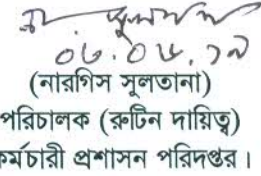 ০৬.০৮.১৯
(নারগিস সুলতানা)
পরিচালক (রুটিন দায়িত্ব)
কর্মচারী প্রশাসন পরিদপ্তর।